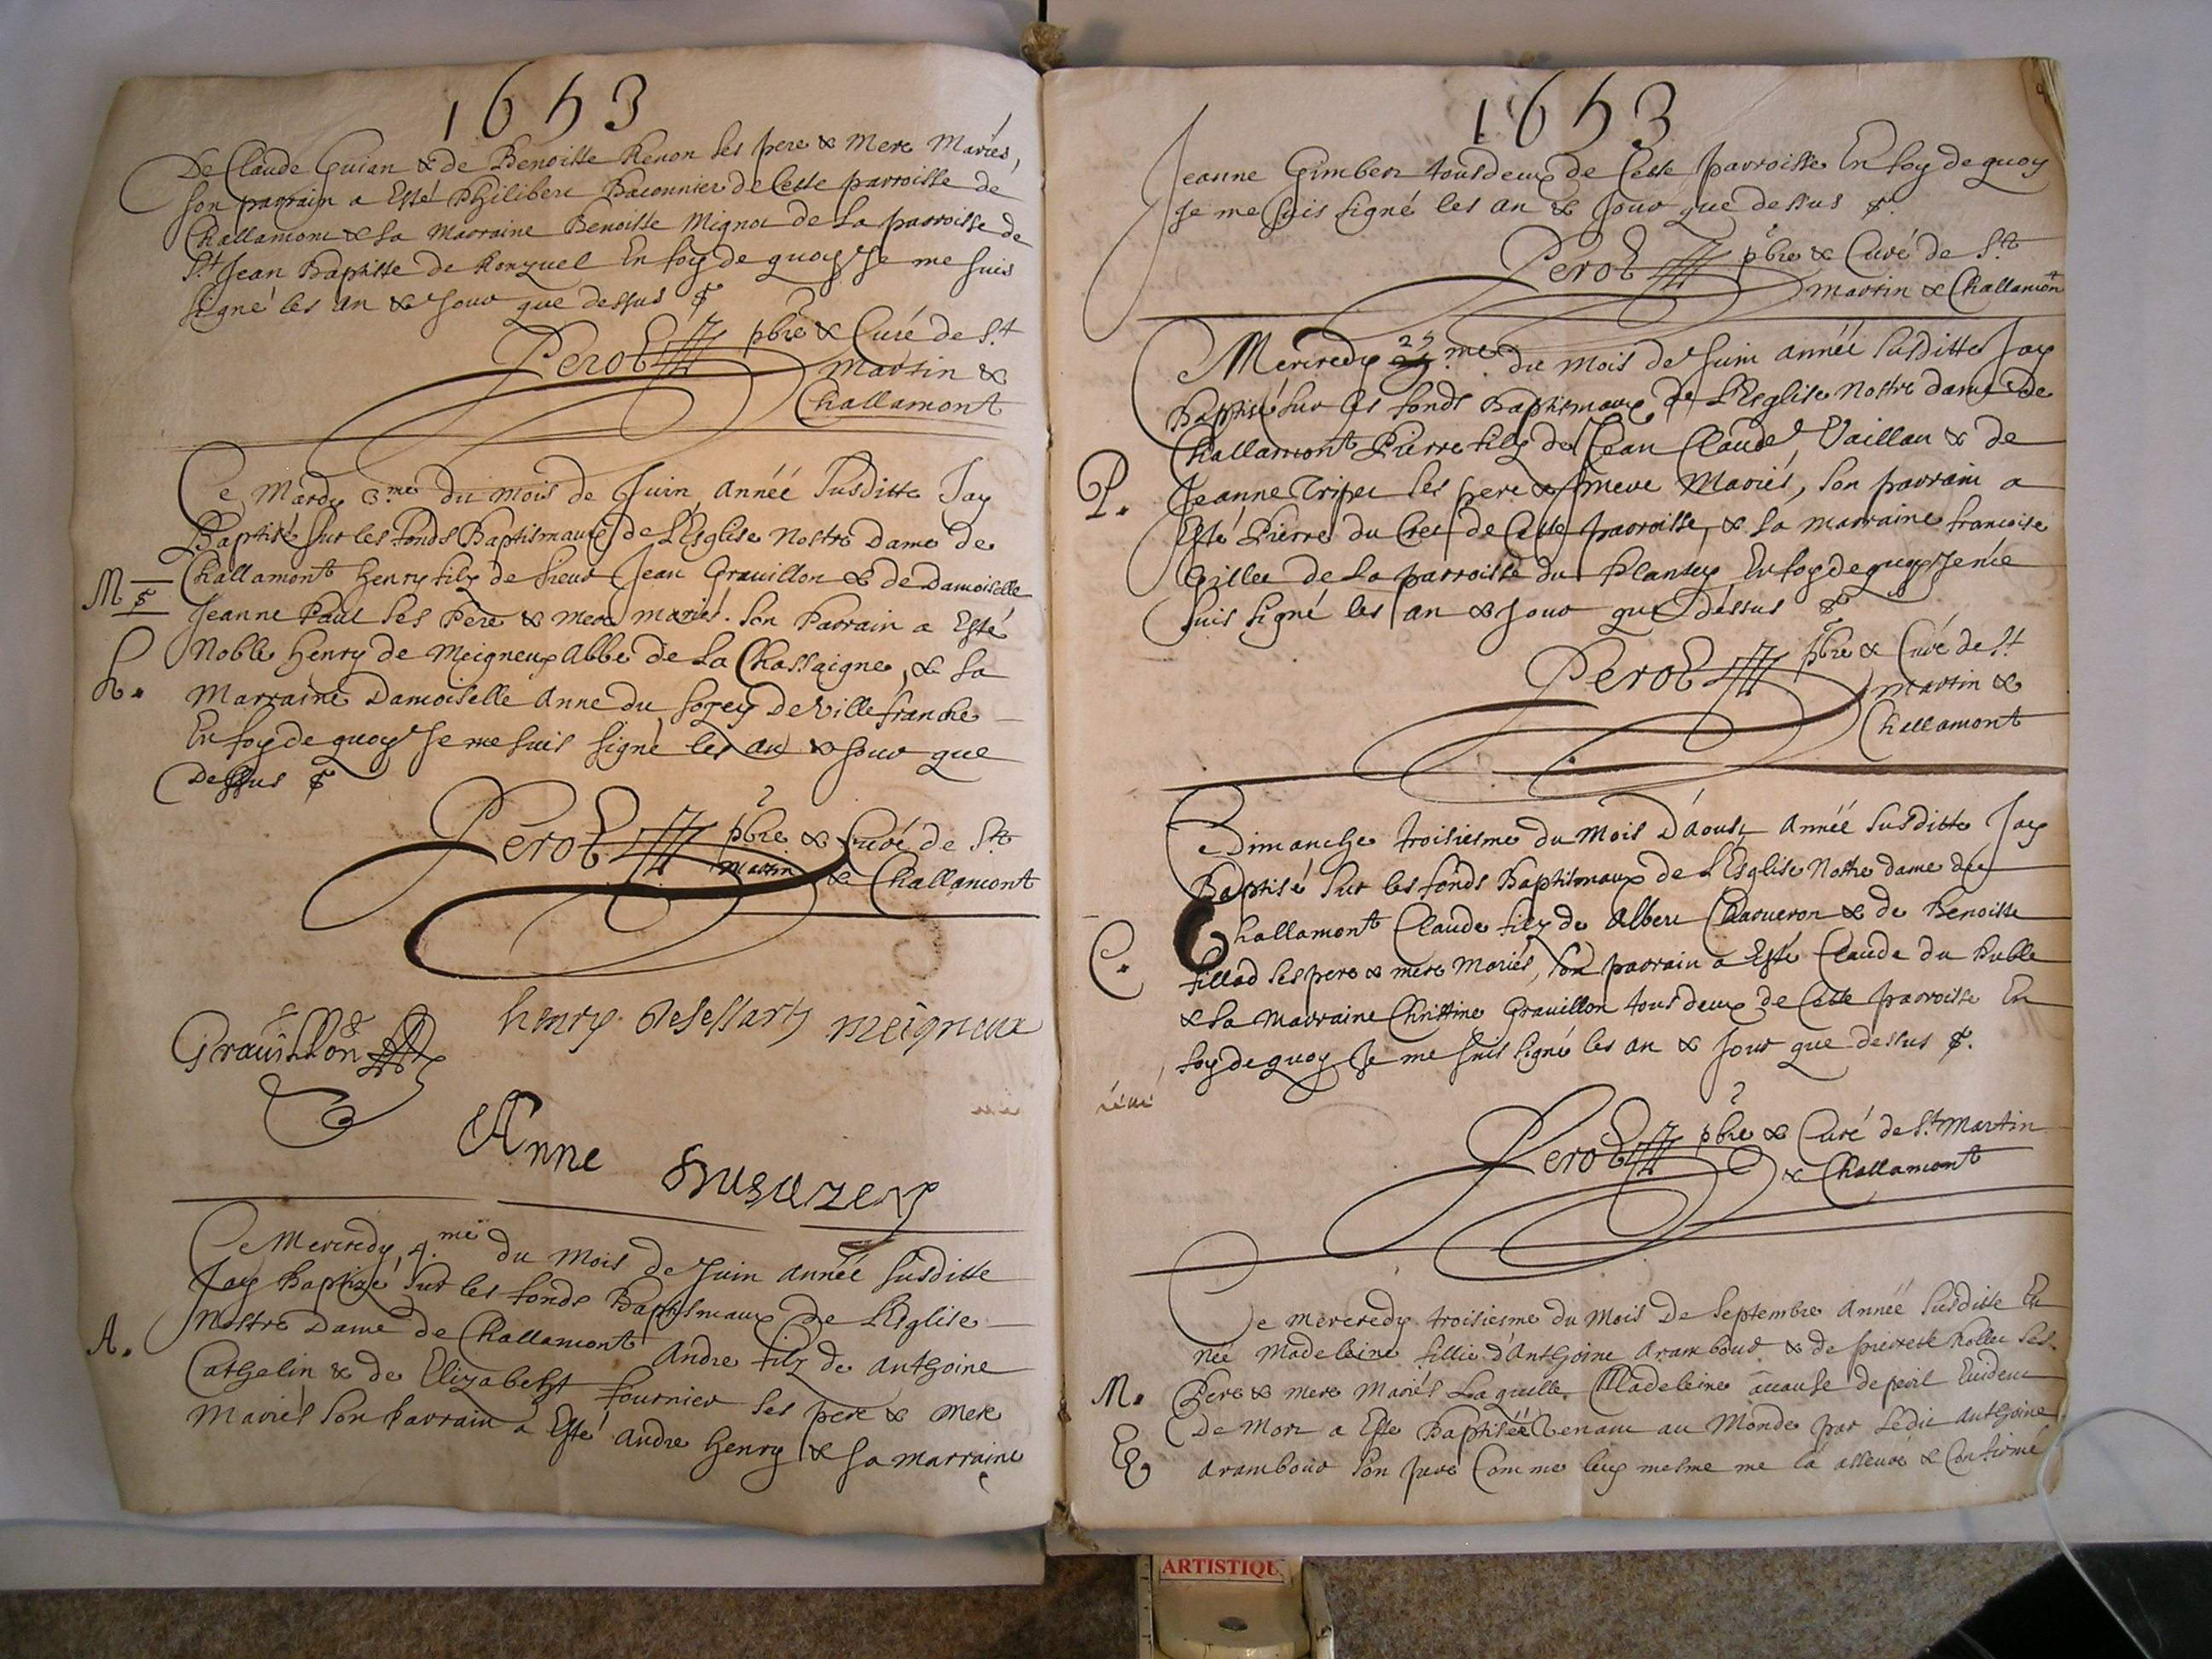 1653
De Claude Guian & de Benoiste Renon ses pere & Mere Mariés,
son parrain a Esté Philibert Baconnier de Cette parroisse de
Challamont & sa Marraine Benoiste Mignot de La parroisse de
St Jean Baptiste de Ronzuel En foy de quoy Je me suis
signé les an & Jour que dessus
Perot pbre & Curé de St
Martin &
Challamont
Ce Mardy 3.me du mois de Juin année susditte Jay
Baptisé sur les fonds Baptismaux de L'Esglise Nostre Dame de
Challamont Henry filz de sieur Jean Grauillon & de Damoiselle
M
Jeanne Paul ses Pere & mere mariés. son Parrain a Esté
Noble Henry de Meigneux Abbé de La Chassaigne, & sa
h.
Marraine Damoiselle Anne du de Ville franche
En foy de quoy Je me suis signé les an & Jour que
Dessus
Perot pbre & Curé de St
Martin & Challamont
Grauillon henry desessarts meigneux
Anne
Ce Mercredy 4.me du Mois de Juin année susditte
Jay Baptizé sur les fonds Baptismaux de L'Eglise
Nostre Dame de Challamont Andre filz de Anthoine
A.
Cathelin & de Elizabeht fournier ses pere & Mere
Mariés son Parrain a Esté Andre Henry & sa Marraine
1653
Jeanne Gimbert tous deux de Cette parroisse En foy de quoy
Je me suis signé les an & Jour que dessus
Perot pbre & Curé de St
Martin & Challamont
Ce Mercredy 25 me. du mois de Juin année susditte Jay
Baptisé sur les fonds Baptismaux de L'Eglise Nostre dame De
Challamont Pierre filz de Jean Claude Vaillan & de
P.
Jeanne Tripet ses pere & mere Mariés, son parrain a
Esté Pierre du Cret de Cette parroisse, & sa marraine francoise
Gillet de La parroisse du Plantey En foy de quoy Je me
suis signé les an & Jour que dessus
Perot pbre & Curé de St
Martin &
Challamont
Ce Dimanche troisiesme du Mois D'Aoust Année susditte Jay
Baptisé sur les fonds Baptismaux de L'Esglise Nostre dame de
Challamont Claude filz de Albert Charveron & de Benoiste
C.
fillod ses pere & mere Mariés, son parrain a Esté Claude du Puble
& sa Marraine Christine Grauillon tous deux de Cette parroisse En
foy de quoy Je me suis signé les an & Jour que dessus
Perot pbre & Curé de St Martin
& Challamont
Ce Mercredy troisiesme du Mois De Septembre Année susditte Est
Née Madeleine fillie d'Anthoine Arambour & de pierrette ses
M.
Pere & mere Mariés Laquelle Madeleine a cause de peril Euident
De Mort a Este Baptisée Venant au Monde par Ledit Anthoine
E
Arambour son pere Comme luy mesme me l'a asseuré & Confirmé
ARTISTIQU